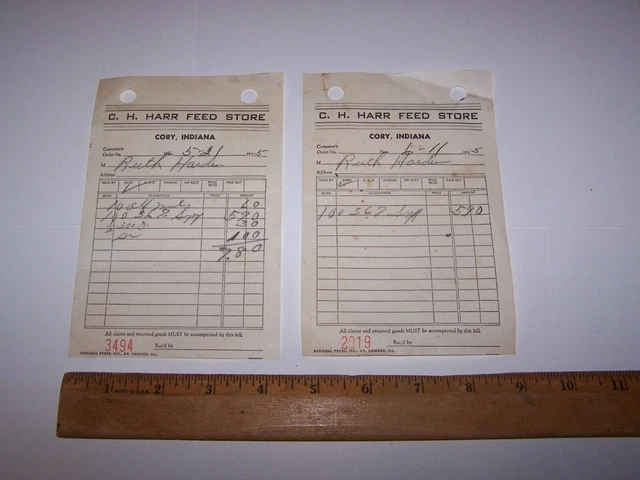 C. H. HARR FEED STORE
CORY, INDIANA
Customer's
Order No. 5-21 195
M Ruth Hardin
Address
SOLD BY CASH CHARGE ON ACCT. PAID OUT
QUAN. DESCRIPTION PRICE AMOUNT
60
100 36% Supp 5 80
1 00
7.80
All claims and returned goods MUST be accompanied by this bill.
3494 Rec'd by
NATIONAL PRESS, INC., NO. CHICAGO, ILL.
C. H. HARR FEED STORE
CORY, INDIANA
Customer's
Order No. 6-11 195
M Ruth Hardin
Address
SOLD BY CASH C.O.D. CHARGE ON ACCT. PAID OUT
QUAN. DESCRIPTION PRICE AMOUNT
100 36% Supp 5 80
All claims and returned goods MUST be accompanied by this bill.
2019 Rec'd by
NATIONAL PRESS, INC., NO. CHICAGO, ILL.
1 2 3 4 5 6 7 8 9 10 11